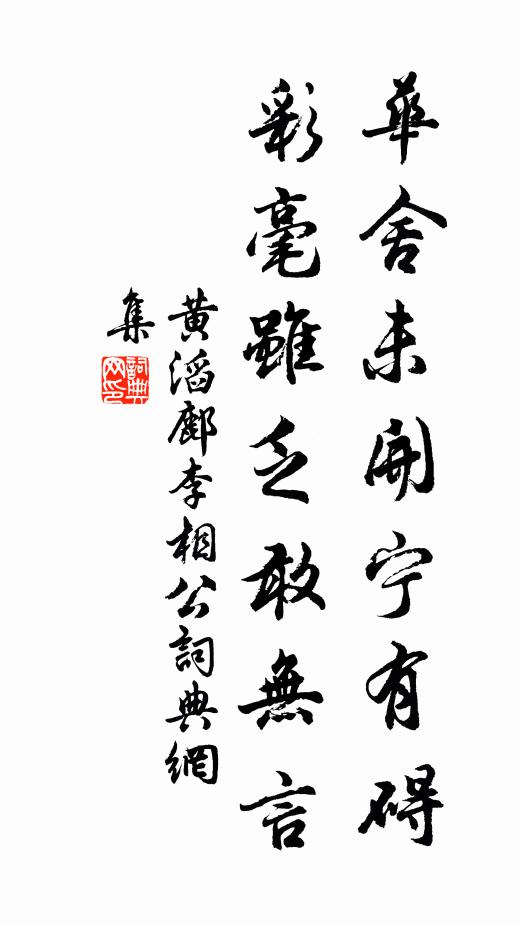 華舍未開宁有碍
彩毫雖乏敢無言
黄滔鄜李相公詞典網
集
詞典
网印